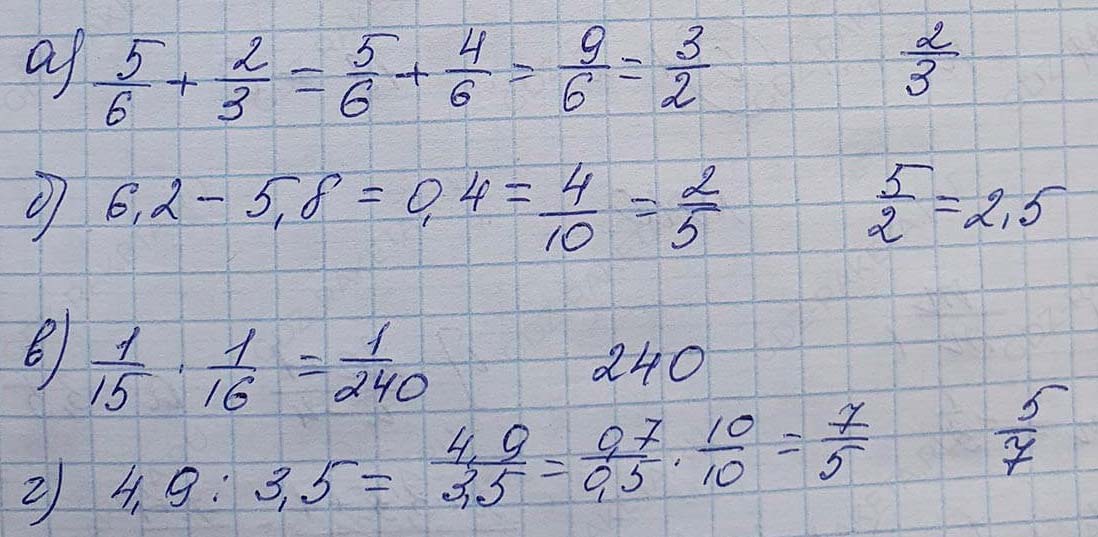 а) 5/6 + 2/3 = 5/6 + 4/6 = 9/6 = 3/2 2/3
б) 6,2 - 5,8 = 0,4 = 4/10 = 2/5 5/2 = 2,5
в) 1/15 · 1/16 = 1/240 240
г) 4,9 : 3,5 = 4,9/3,5 = 0,7/0,5 · 10/10 = 7/5 5/7